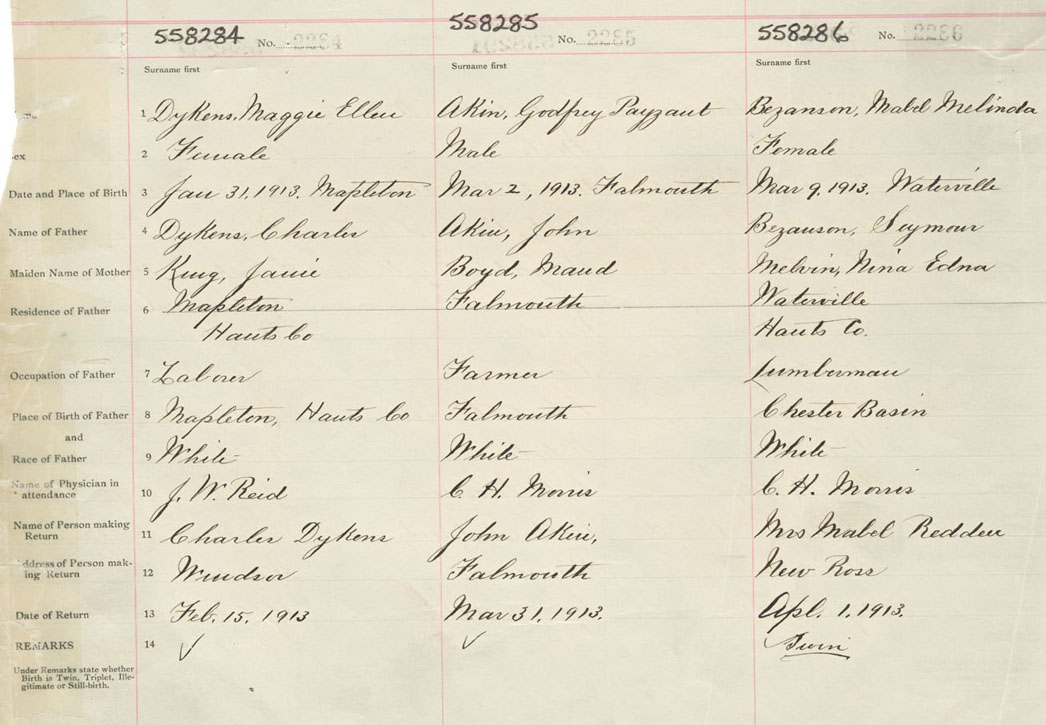 558284 No. 2284 558285 No. 2285 558286 No. 2286
Surname first Surname first Surname first
1 Dykens, Maggie Ellen Akin, Godfrey Payzant Bezanson, Mabel Melinda
ex 2 Female Male Female
Date and Place of Birth 3 Jan 31, 1913. Mapleton Mar 2, 1913. Falmouth Mar 9, 1913. Waterville
Name of Father 4 Dykens, Charles Akin, John Bezanson, Seymour
Maiden Name of Mother 5 King, Janie Boyd, Maud Melvin, Nina Edna
Residence of Father 6 Mapleton Falmouth Waterville
Hants Co Hants Co.
Occupation of Father 7 Laborer Farmer Lumberman
Place of Birth of Father 8 Mapleton, Hants Co Falmouth Chester Basin
and
Race of Father 9 White White White
Name of Physician in
attendance 10 J. W. Reid C. H. Morris C. H. Morris
Name of Person making
Return 11 Charles Dykens John Akin, Mrs Mabel Redden
ddress of Person mak-
ing Return 12 Windsor Falmouth New Ross
Date of Return 13 Feb. 15, 1913 Mar 31, 1913. Apl. 1, 1913.
REMARKS 14 ✓ ✓ Twin
Under Remarks state whether
Birth is Twin, Triplet, Ille-
gitimate or Still-birth.